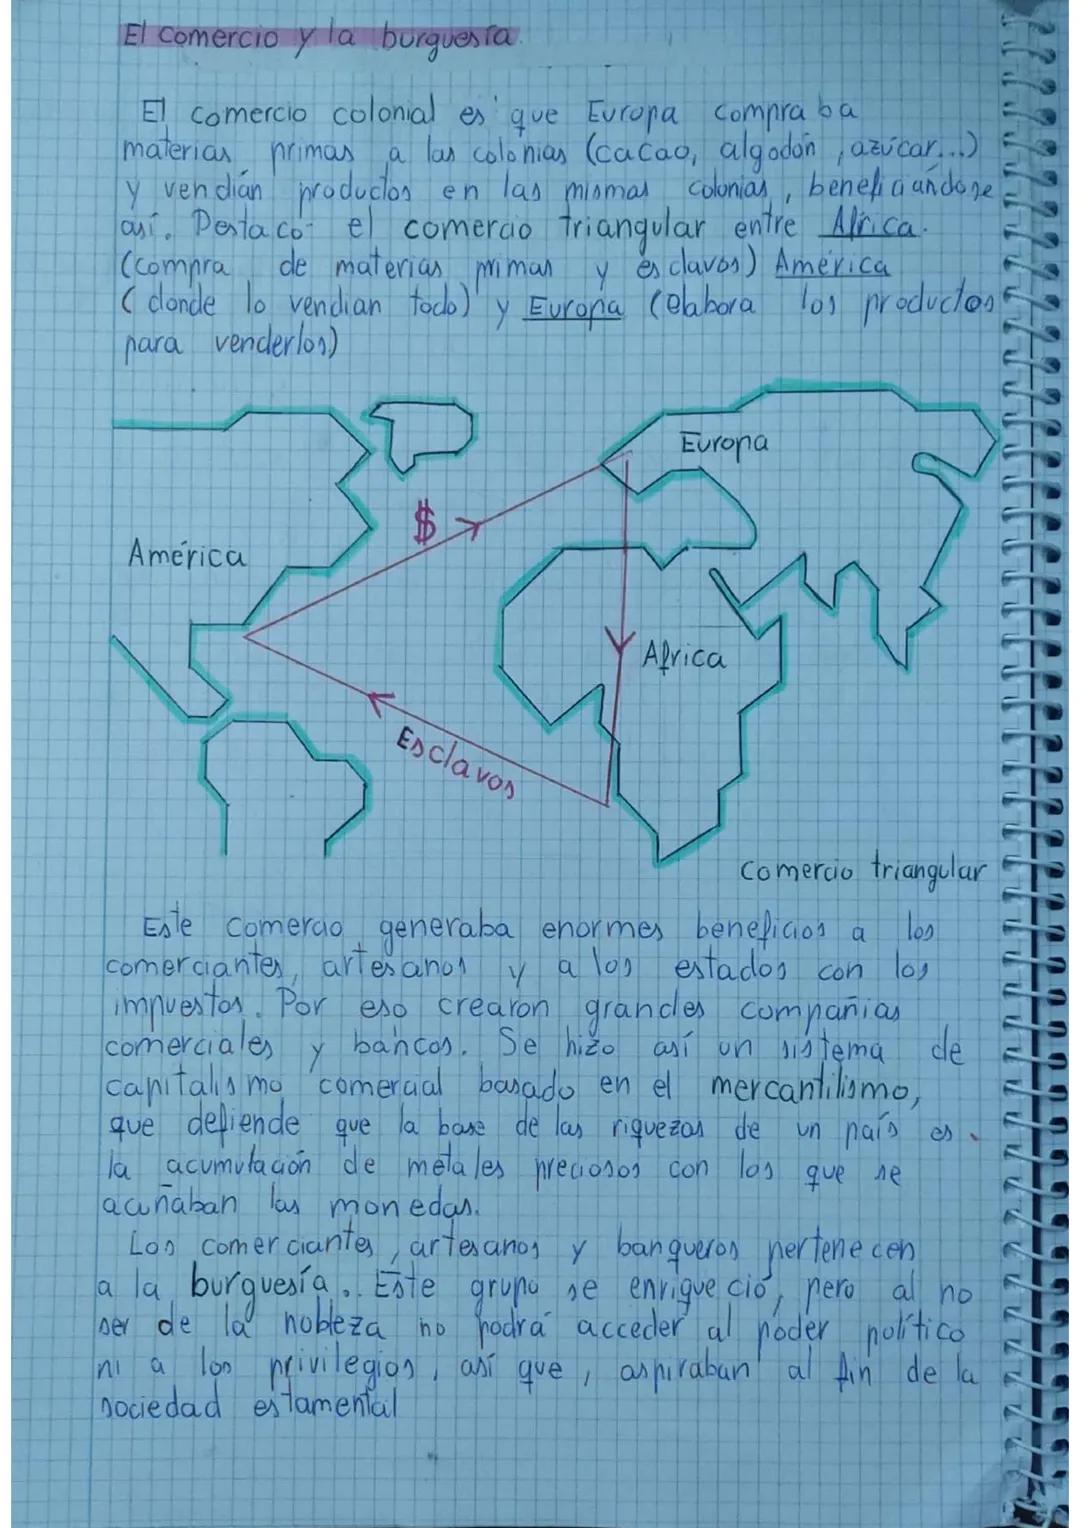 El comercio y la burguesía.
El comercio colonial es que Europa compraba
materias primas a las colonias (cacao, algodón, azúcar...)
y vendián productos en las mismas colonias, beneficiandose
así. Destacó el comercio triangular entre Africa.
(compra de materias primas y esclavos) América
(donde lo vendian todo) y Europa (elabora los productos
para venderlos)
Europa
$
América
Africa
Esclavos
Comercio triangular
Este comercio generaba enormes beneficios a los
comerciantes, artesanos y a los estados con los
impuestos. Por eso crearon grandes compañias
comerciales y bancos. Se hizo así un sistema de
capitalismo comercial basado en el mercantilismo,
que defiende que la base de las riquezas de un país es
la acumulación de metales preciosos con los que se
acuñaban las monedas.
Los comerciantes, artesanos y banqueros pertenecen
a la burguesía. Este grupo se enriqueció, pero al no
ser de la nobleza no podrá acceder al poder político
ni a los privilegios, así que, aspiraban al fin de la
sociedad estamental